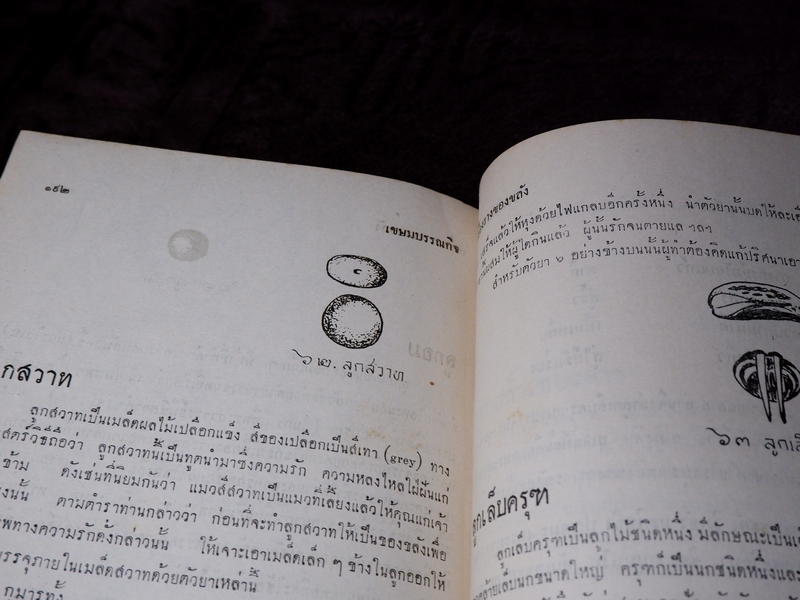 ๑๕๒
เขษมบรรณกิจ
๖๒. ลูกสวาท
กสวาท
ลูกสวาทเป็นเมล็ดผลไม้เปลือกแข็ง สีของเปลือกเป็นสีเทา (grey) ทาง
สตร์วิธีถือว่า ลูกสวาทนี้เป็นทูตนำมาซึ่งความรัก ความหลงไหลใฝ่ฝันแก่
ข้าม ดังเช่นที่นิยมกันว่า แมวสีสวาทเป็นแมวที่เลี้ยงแล้วให้คุณแก่เจ้า
งนั้น ตามตำราท่านกล่าวว่า ก่อนที่จะทำลูกสวาทให้เป็นของขลังเพื่อ
พทางความรักดังกล่าวนั้น ให้เจาะเอาเมล็ดเล็ก ๆ ข้างในลูกออกให้
รรจุภายในเมล็ดสวาทด้วยตัวยาเหล่านี้
กุมารทั้ง
างของขลัง
ร็จแล้วให้หุงด้วยไฟแกลบอีกครั้งหนึ่ง นำตัวยานั้นบดให้ละเอี
ให้ผู้ใดกินแล้ว ผู้นั้นรักจนตายแล ฯลฯ
สำหรับตัวยา ๖ อย่างข้างบนนั้นผู้ทำต้องคิดแก้ปริศนาเอา
๖๓ ลูกเล็
ลูกเล็บครุฑ
ลูกเล็บครุฑเป็นลูกไม้ชนิดหนึ่ง มีลักษณะเป็นเ
คล้ายเล็บนกขนาดใหญ่ ครุฑก็เป็นนกชนิดหนึ่งและ